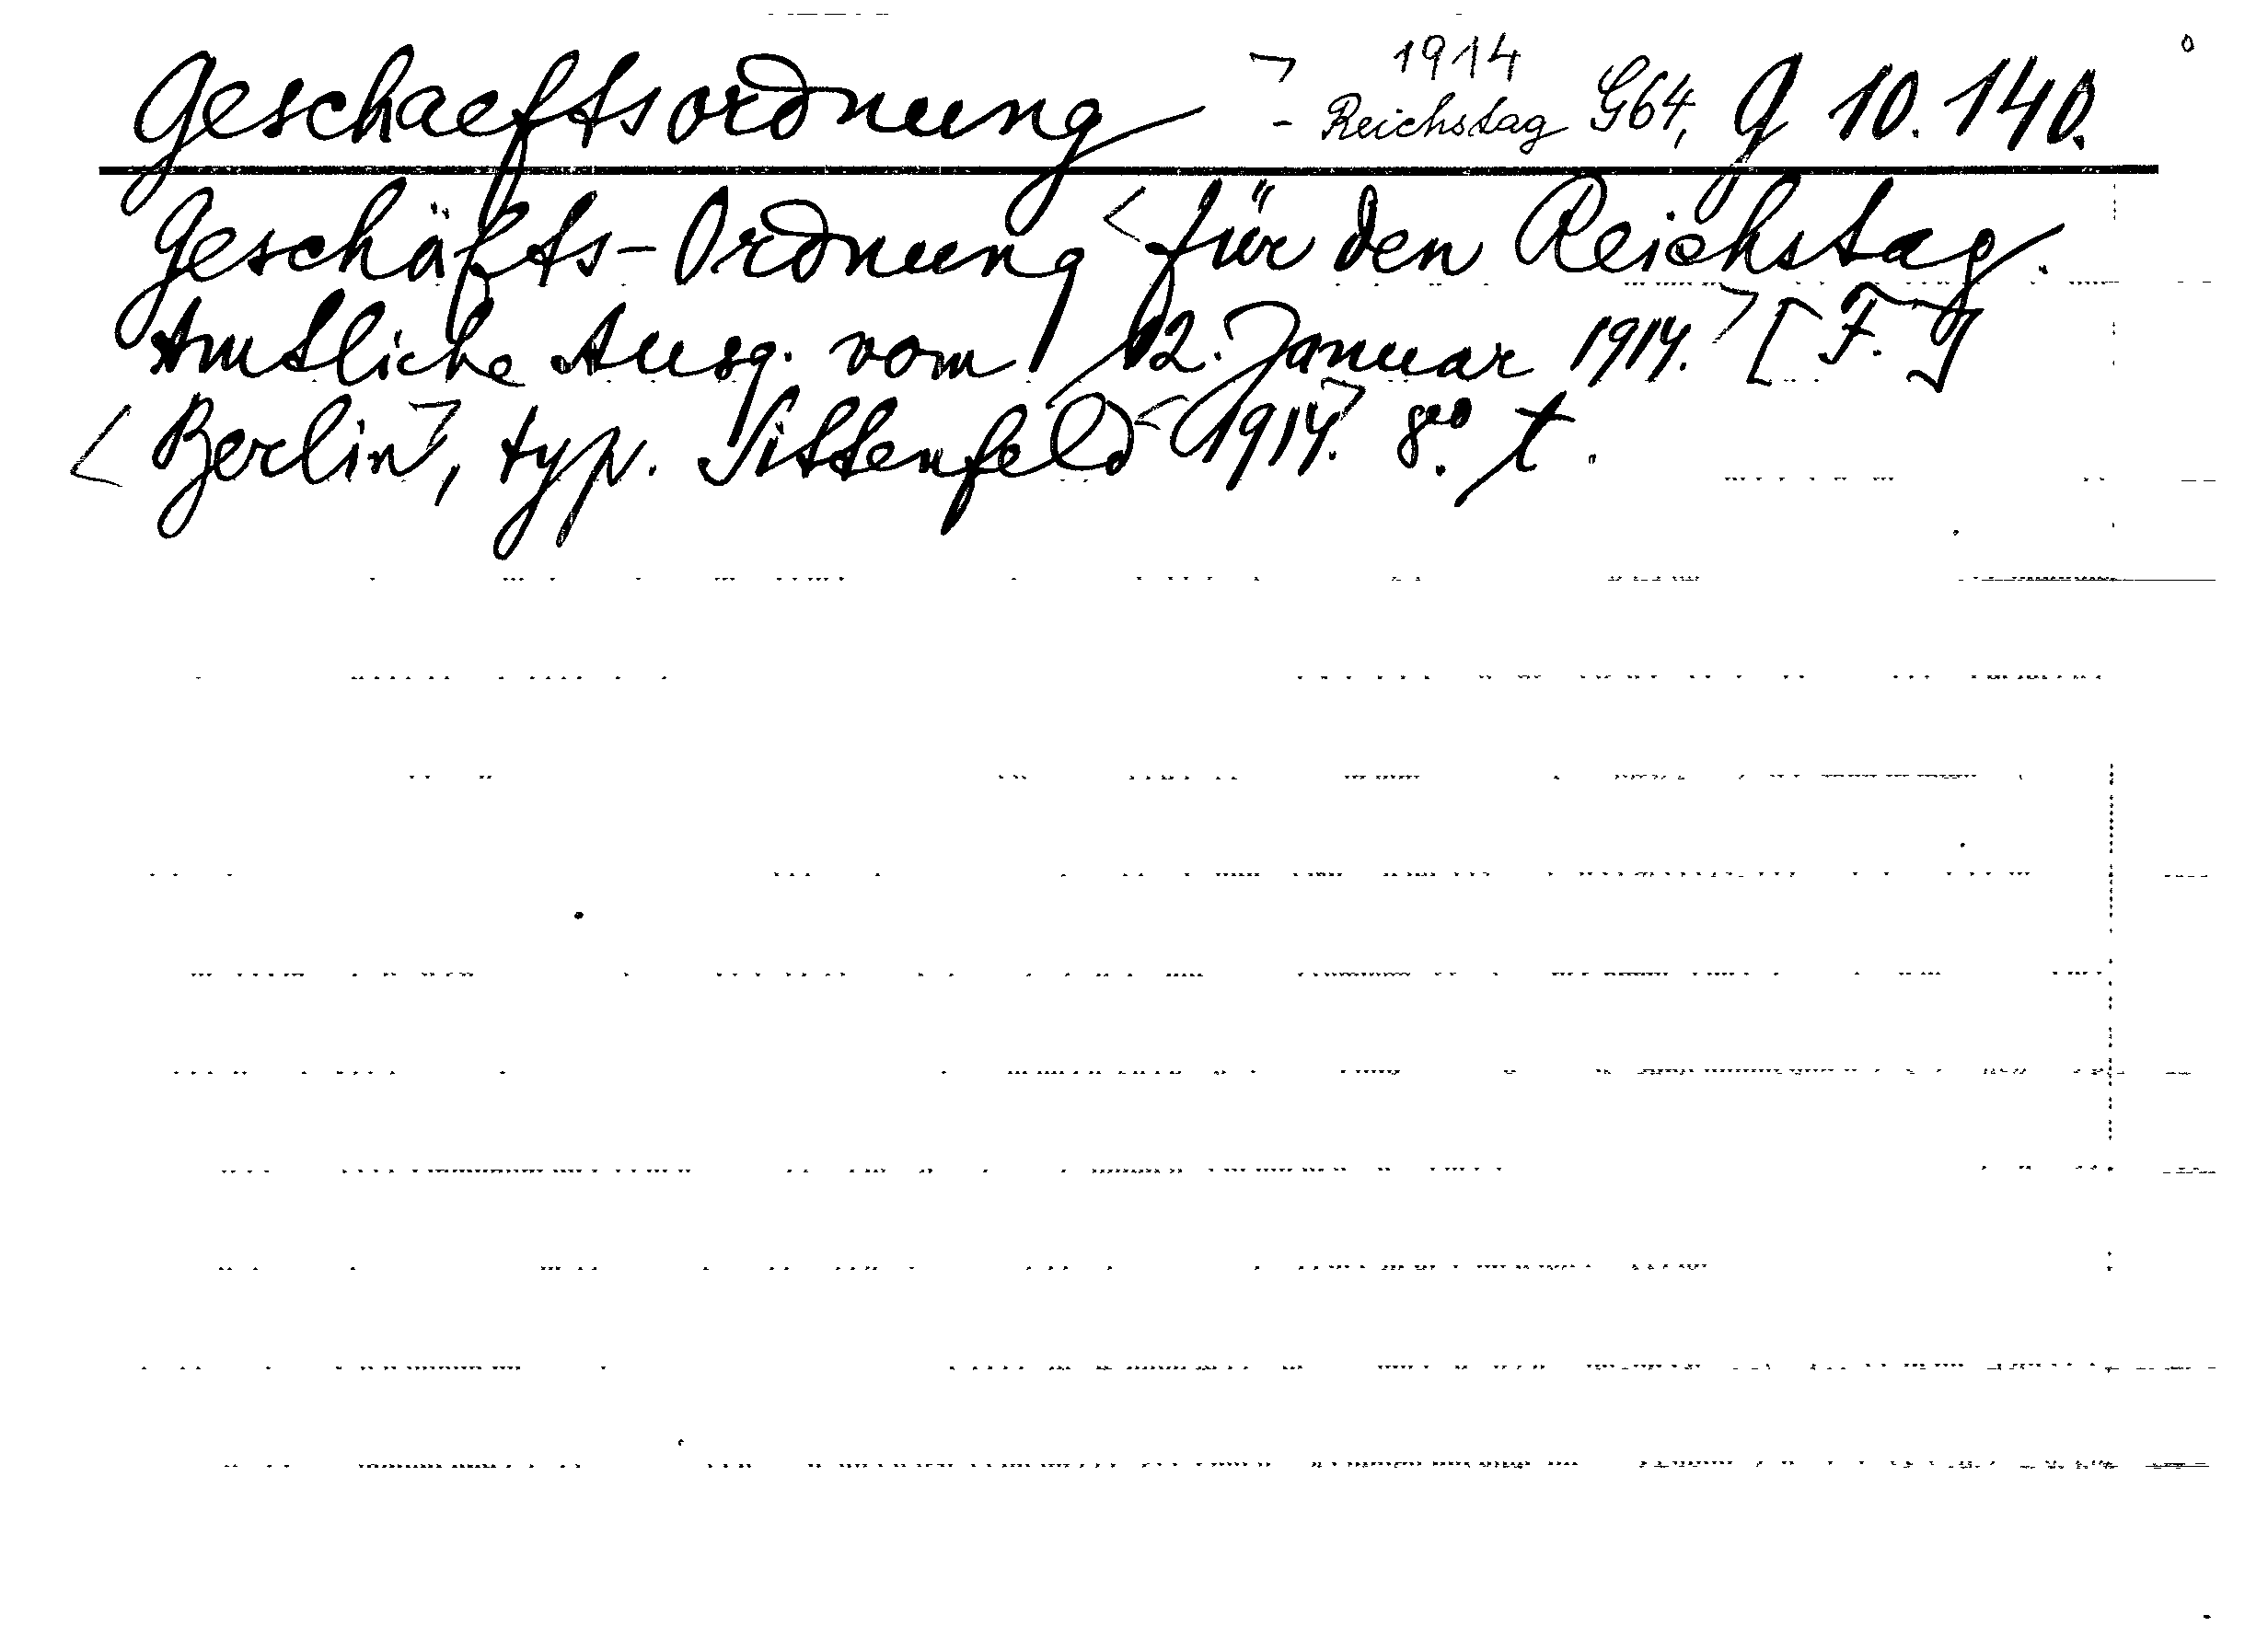 Geschaeftsordnung ¬ 1914
- Reichstag G64, G 10. 140.
Geschäfts-Ordnung < für den Reichstag.
Amtliche Ausg. vom 12. Januar 1914. ¬ [F.]
< Berlin ¬, typ. Sittenfeld < 1914. ¬ 8°. t.